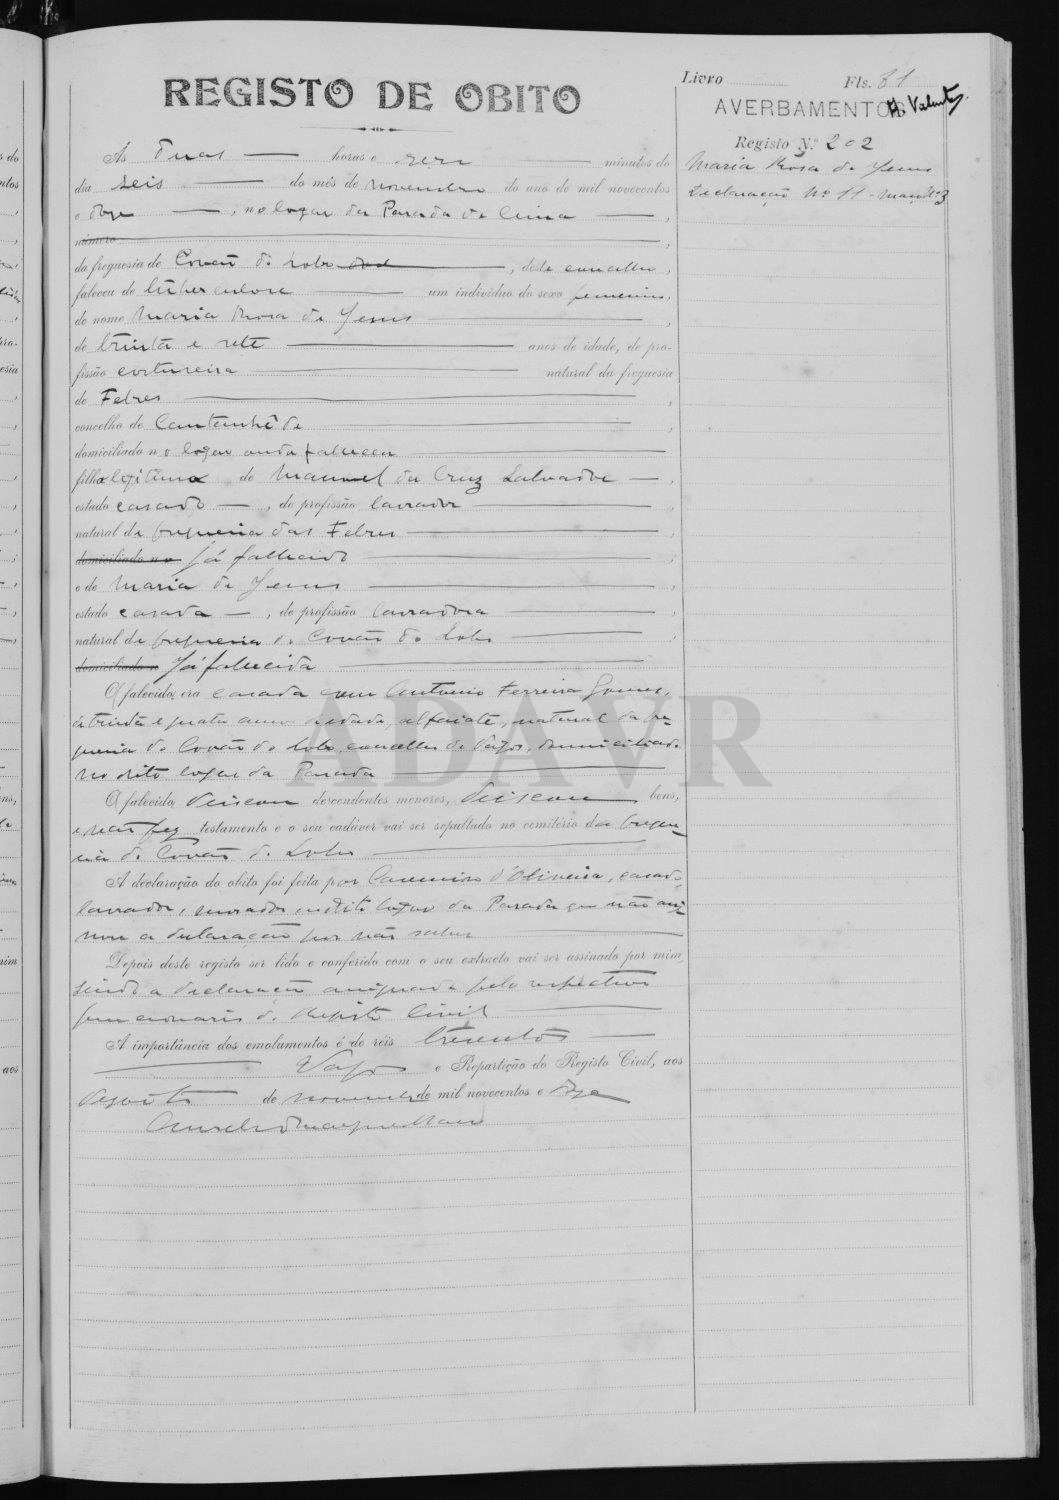 REGISTO DE OBITO
Livro Fls. 81
AVERBAMENTOS
Registo N.º 202
Maria Rosa de Jesus
Declaração Nº 11 - Maço Nº 3
Ás duas horas e zero minutos do
dia seis do mês de novembro do ano de mil novecentos
e doze, no logar da Parada de Cima,
número
da freguesia de Covão do Lobo, deste concelho,
faleceu de tuberculose um individuo do sexo femenino,
de nome Maria Rosa de Jesus,
de trinta e sete anos de idade, de pro-
fissão costureira natural da freguesia
de Febres,
concelho de Cantanhêde
domiciliado no logar onde falleceu
filha legitima de Manuel da Cruz Salvador,
estado casado, de profissão lavrador,
natural de freguesia das Febres
domiciliado no já fallecido;
e de Maria de Jesus,
estado casada, de profissão lavradora,
natural de freguesia do Covão do Lobo,
domiciliado n Já fallecida
O falecido era casada com Antonio Ferreira Gomes,
de trinta e quatro annos de idade, alfaiate, natural da fre-
guesia do Covão do Lobo, concelho de Vagos, domiciliado
no dito logar da Parada
O falecido deixou descendentes menores, deixou bens,
e não fez testamento e o seu cadáver vai ser sepultado no cemitério da fregue-
sia do Covão do Lobo
A declaração do obito foi feita por Casemiro d'Oliveira, casado
lavrador, morador no dito logar da Parada que não assi-
nou a declaração por não saber
Depois deste registo ser lido e conferido com o seu extracto vai ser assinado por mim,
sendo a declaração assignada pelo respectivo
funcionario do Registo Civil
A importância dos emolumentos é de réis trezentos
Vagos e Repartição do Registo Civil, aos
de novembro de mil novecentos e doze
ADAVR